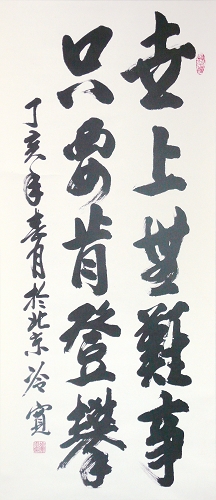 世上無難事
只要肯登攀
丁亥年春月於北京冷寬